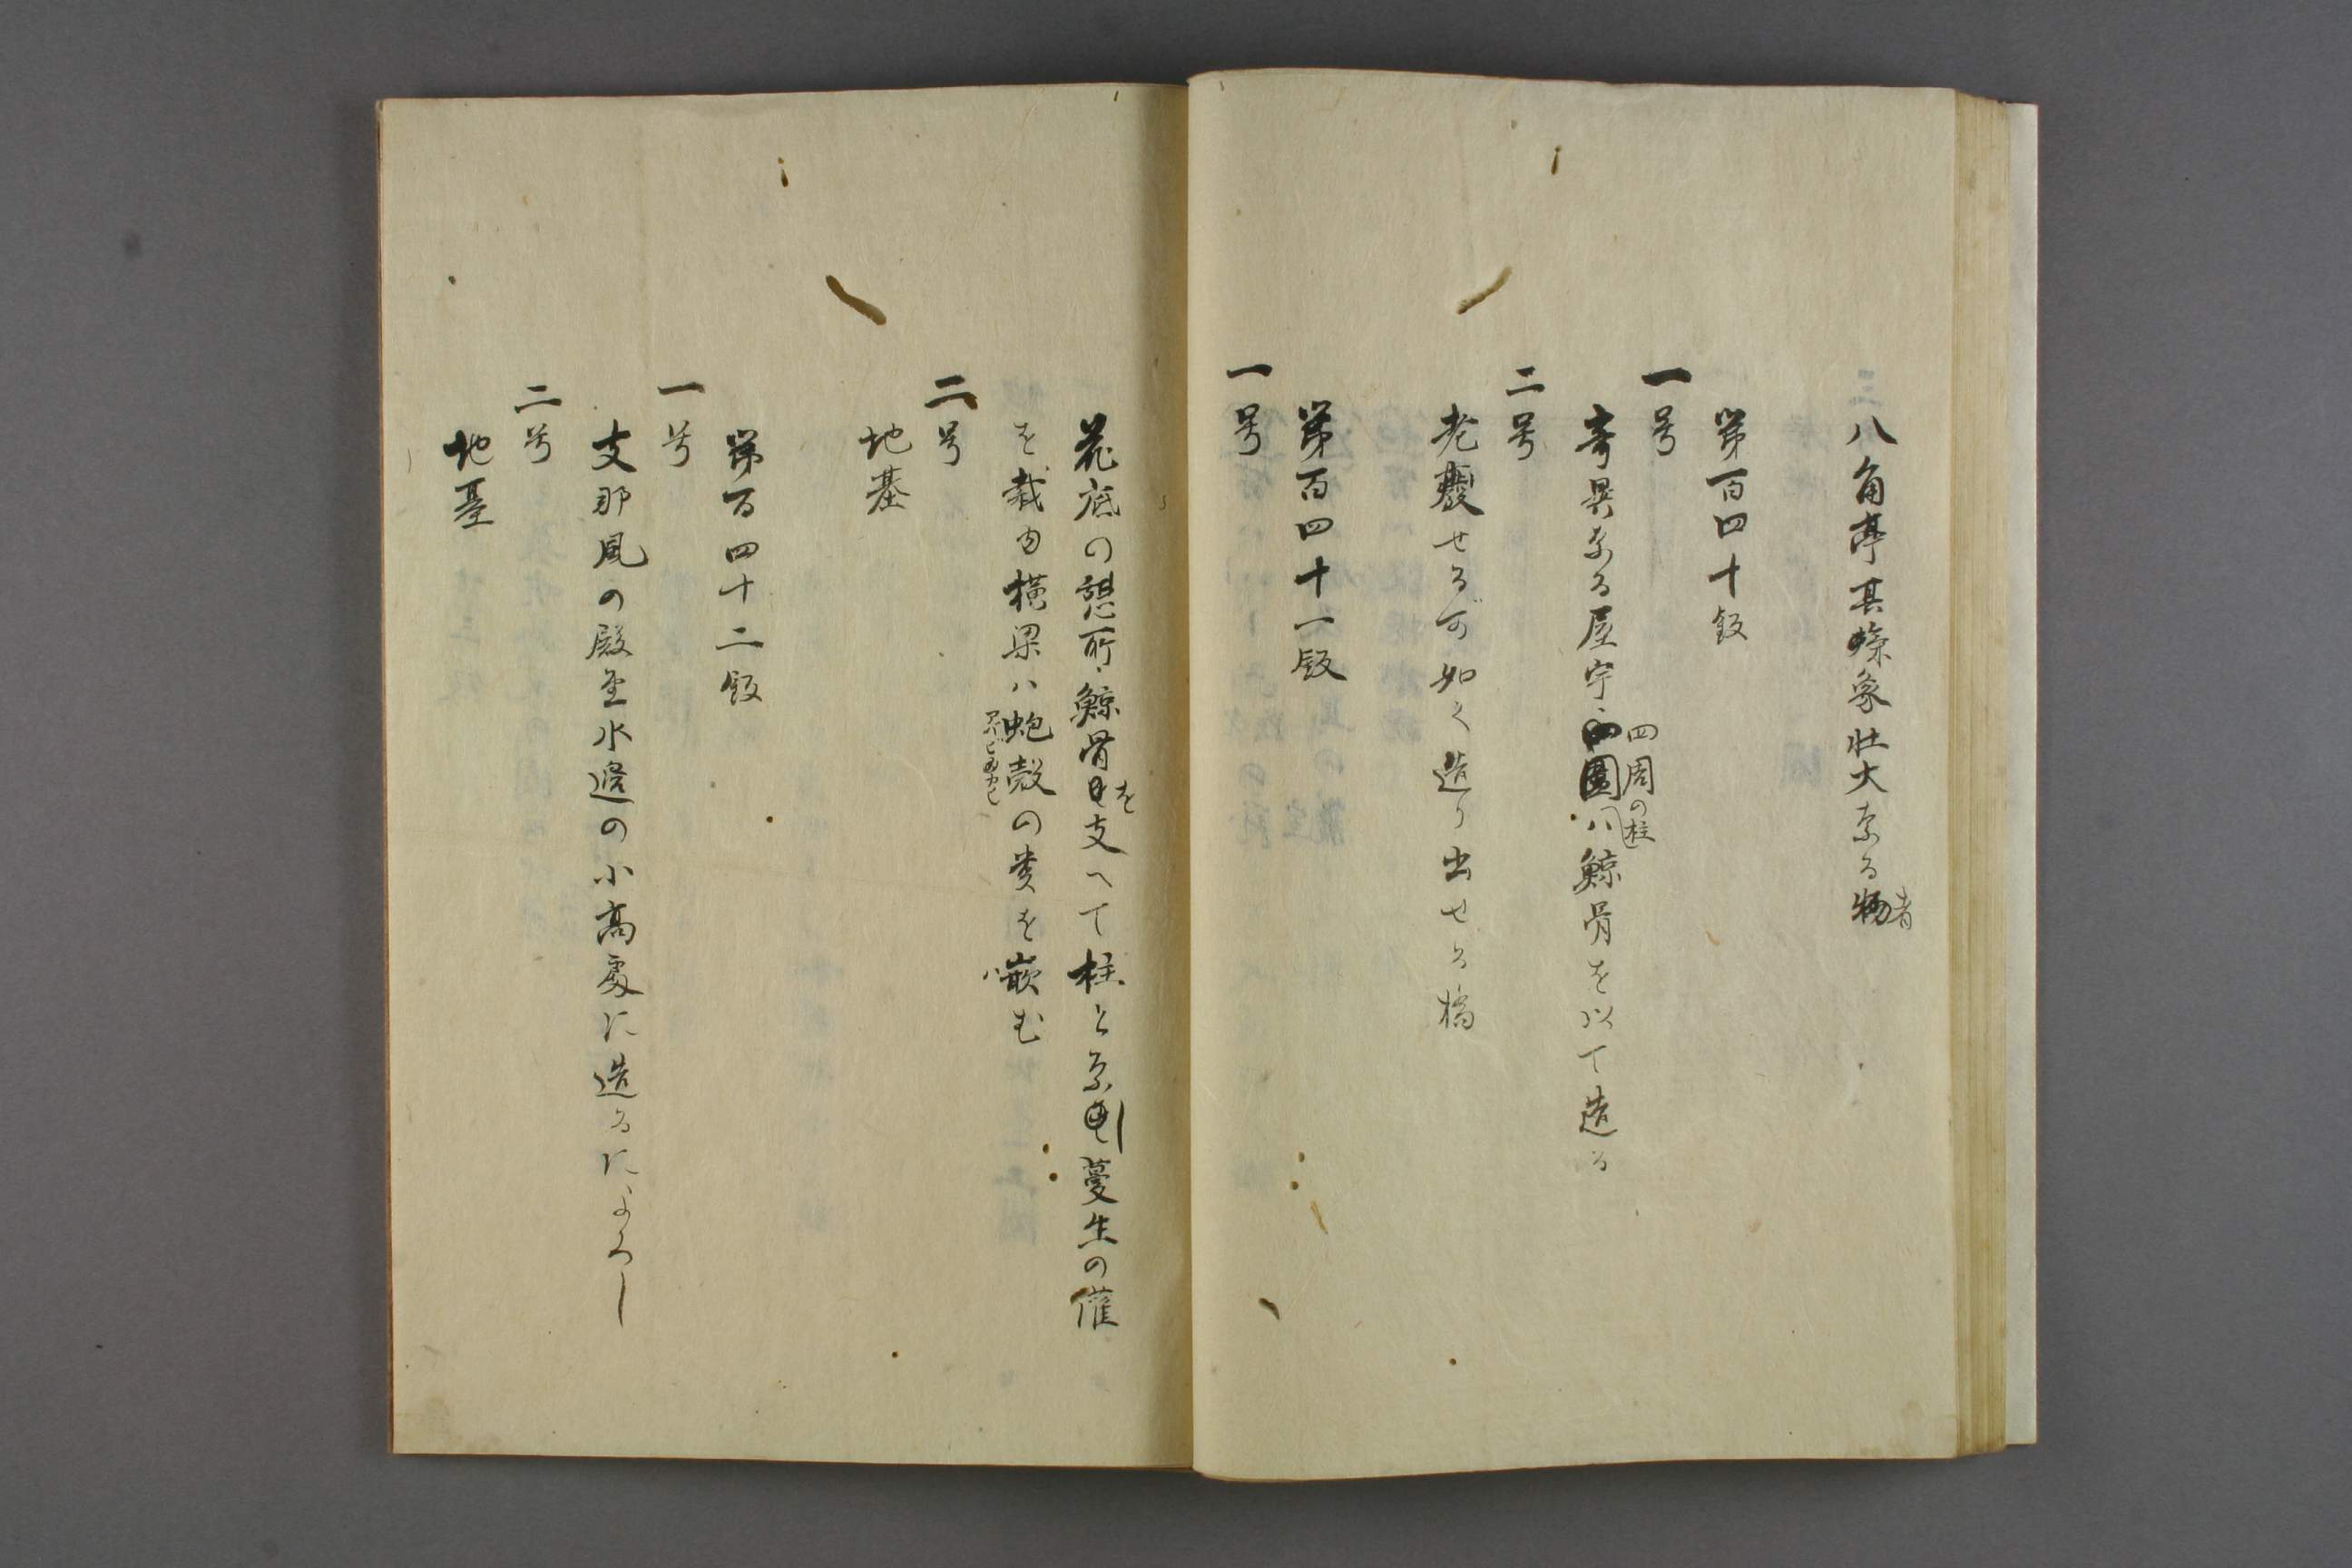 八角亭其様象壮大なる物者
第百四十版
一号
奇異なる屋宇四周の柱ハ鯨骨を以て造る
二号
老衰せるが如く造り出せる橋
第百四十一版
一号
花底の憩所鯨骨を支へて柱とな蔓生の
を栽由横梁ハ鮑殻の類を嵌む
アハビカヒ
二号
地基
第百四十二版
一号
支那風の殿堂水邊の小高處に造るによろし
二号
地基